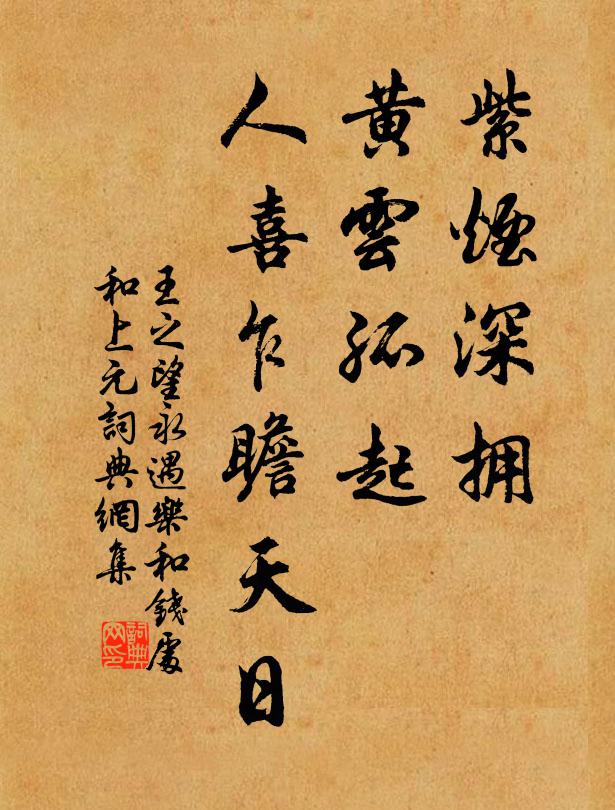 紫煙深拥
黄雲孤起
人喜乍瞻天日
王之望永遇樂和錢處
和上元詞典網集
詞典網印